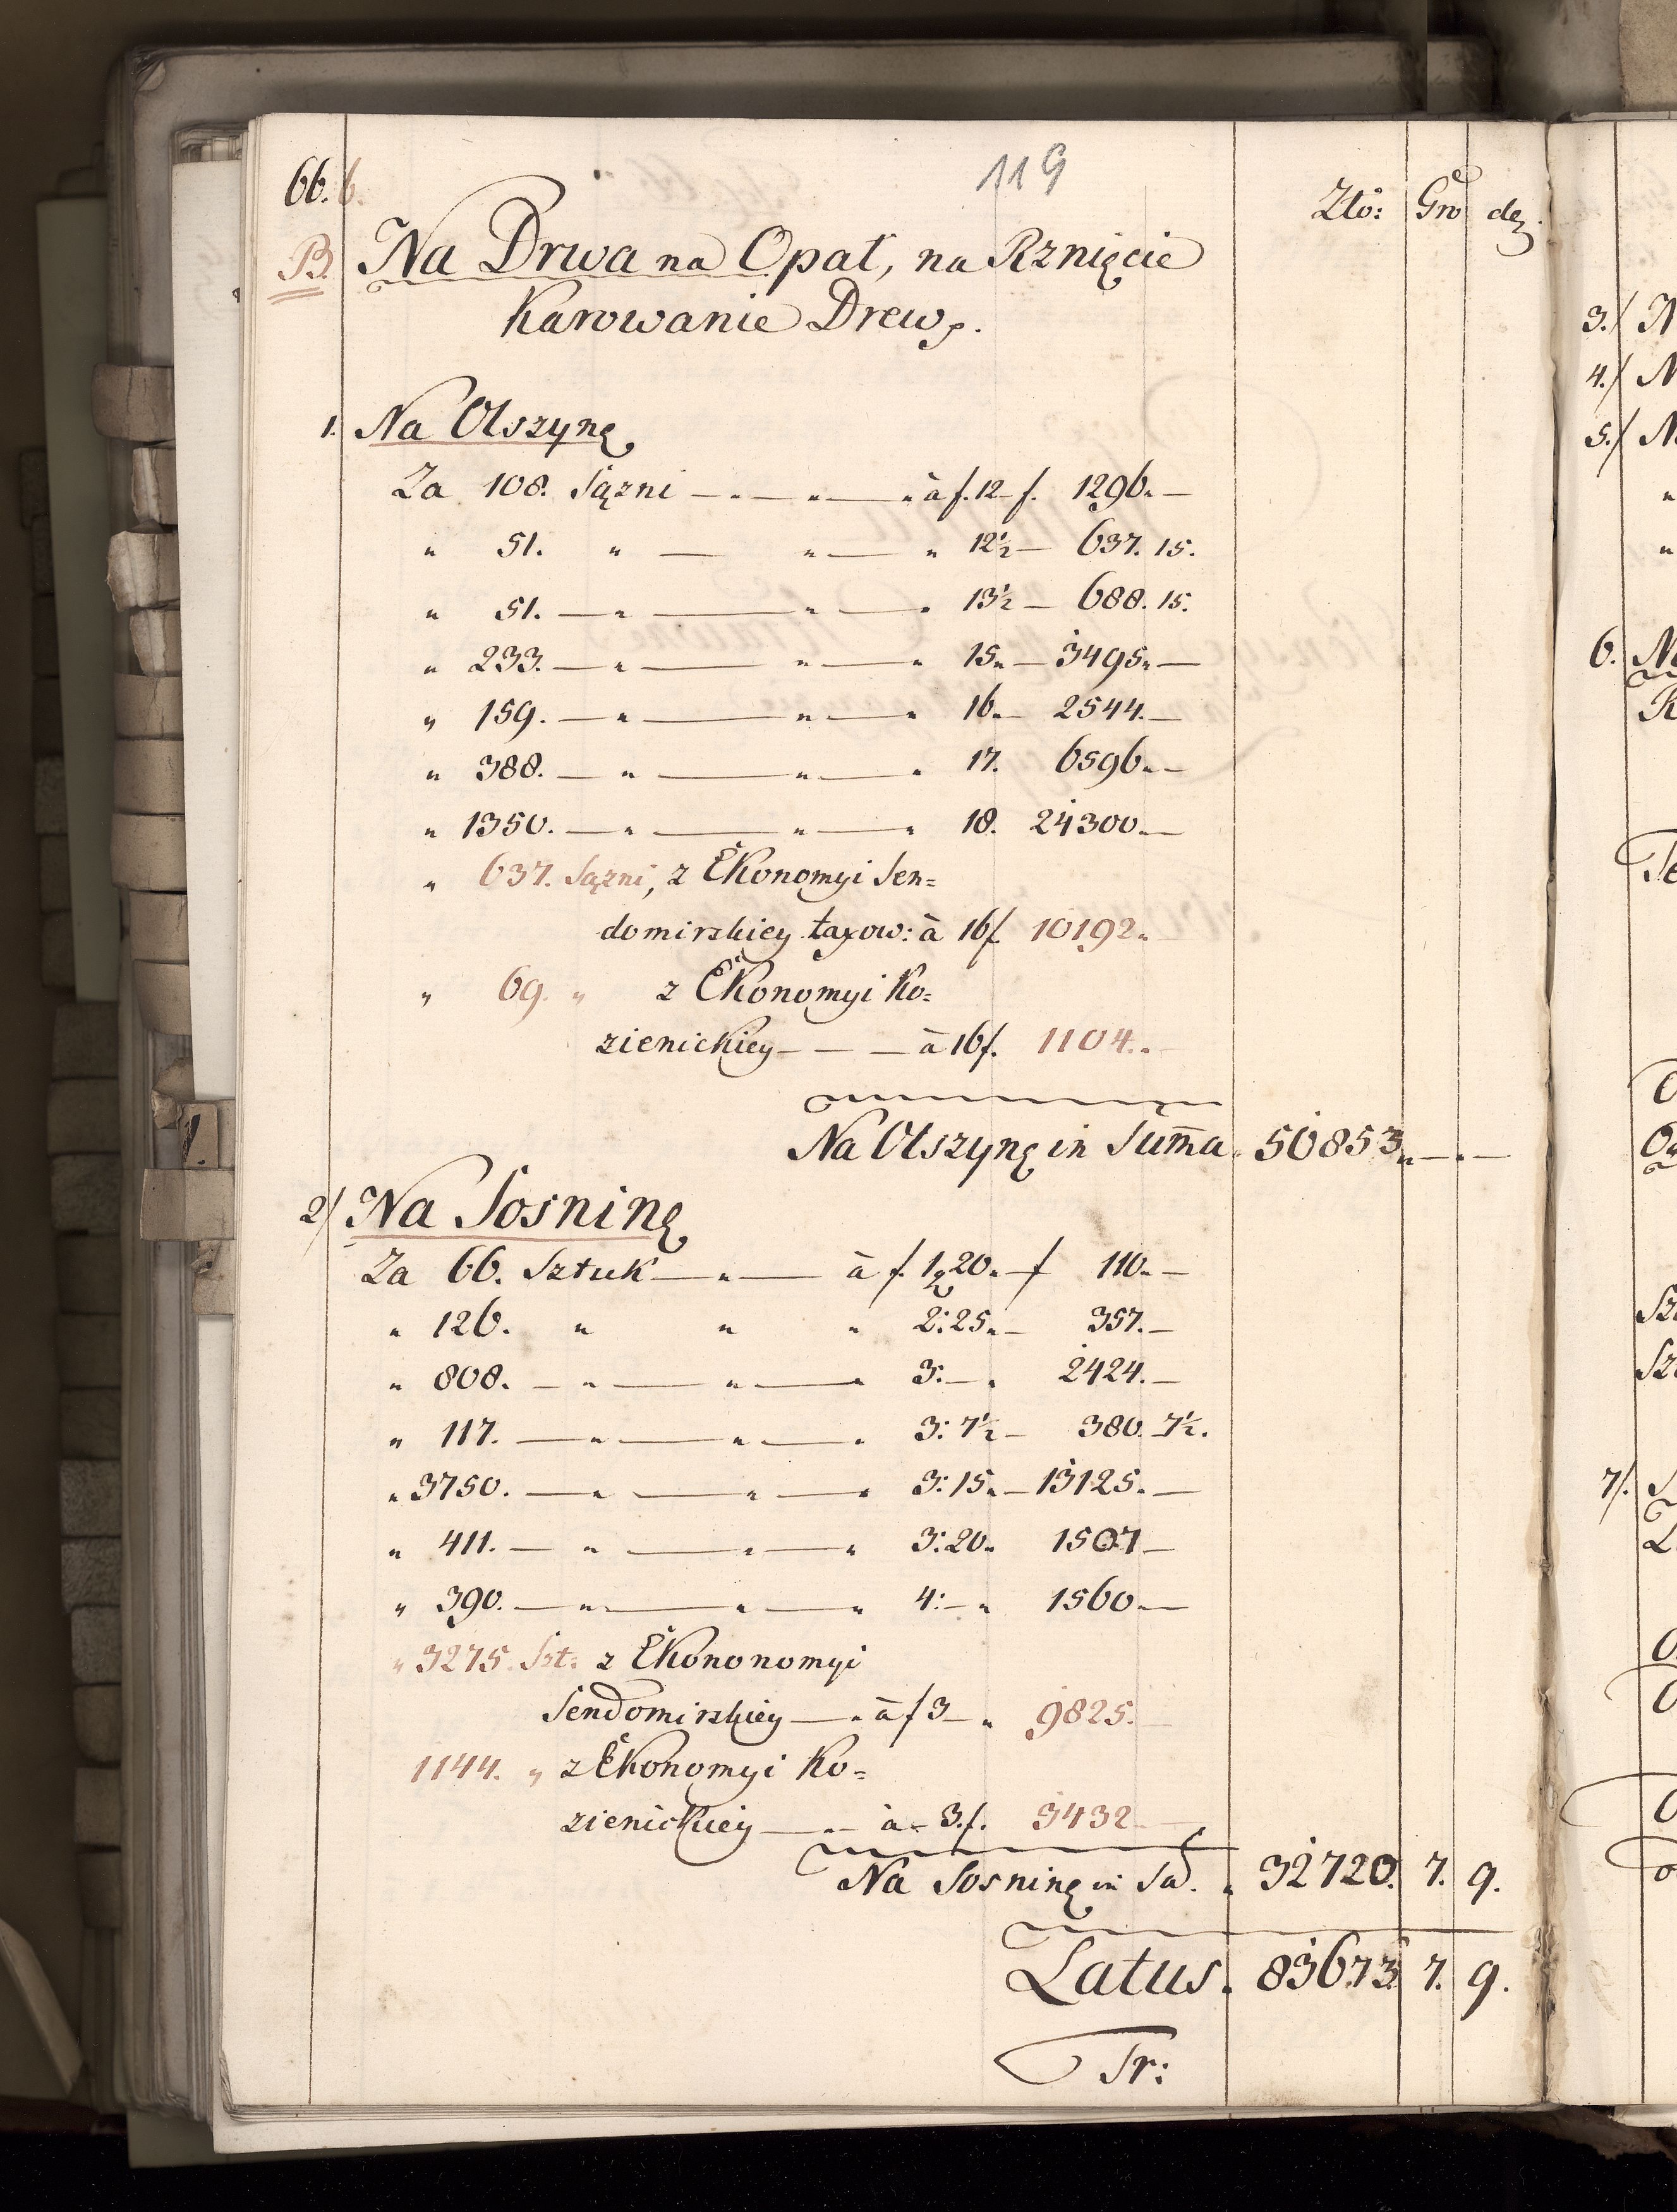 66. 6.
119
Złо: Gro den.
B. Na Drwa na Opał, na Rznięcie
Karowanie Drew.
1. Na Olszynę
Za 108. Sązni — " — " — " à f. 12 f. 1296. —
" 51. " — " — " 12½ — 637. 15.
" 51. — " — " — " 13½ — 688. 15.
" 233. — " — " — " 15 " — 3495 " —
" 159. — " — " — " 16. — 2544. —
" 388. — " — " — " 17. 6596. —
" 1350. — " — " — " 18. 24300. —
" 637. Sązni, z Ekonomyi Sen=
domirskiey taxow: à 16 f. 10192. "
" 69. " z Ekonomyi Ko=
zienickiey — — — à 16 f. 1104. .
Na Olszynę in Suma. 50853. " — " —
2/ Na Sosninę
Za 66. Sztuk — " — à f. 1. 20. — f 110. —
" 126. " " " 2: 25 " — 357. —
" 808. — " — " — " 3: — " 2424. —
" 117. — " — " — " 3: 7½ — 380. 7½.
" 3750. — " — " — " 3: 15 " — 13125. —
" 411. — " — " — " 3: 20 " 1507 —
" 390. — " — " — " 4: — " 1560 —
" 3275. Szt: z Ekononomyi
Sendomirskiey — " à f 3 — " 9825. —
1144. " z Ekonomyi Ko=
zienickiey — " — à = 3. f. 3432 —
Na Sosninę in Sa. " 32720. 7. 9.
Latus. 83673. 7. 9.
Tr:
3./ N
4./ N
5./ N
6. Na
R
7/.